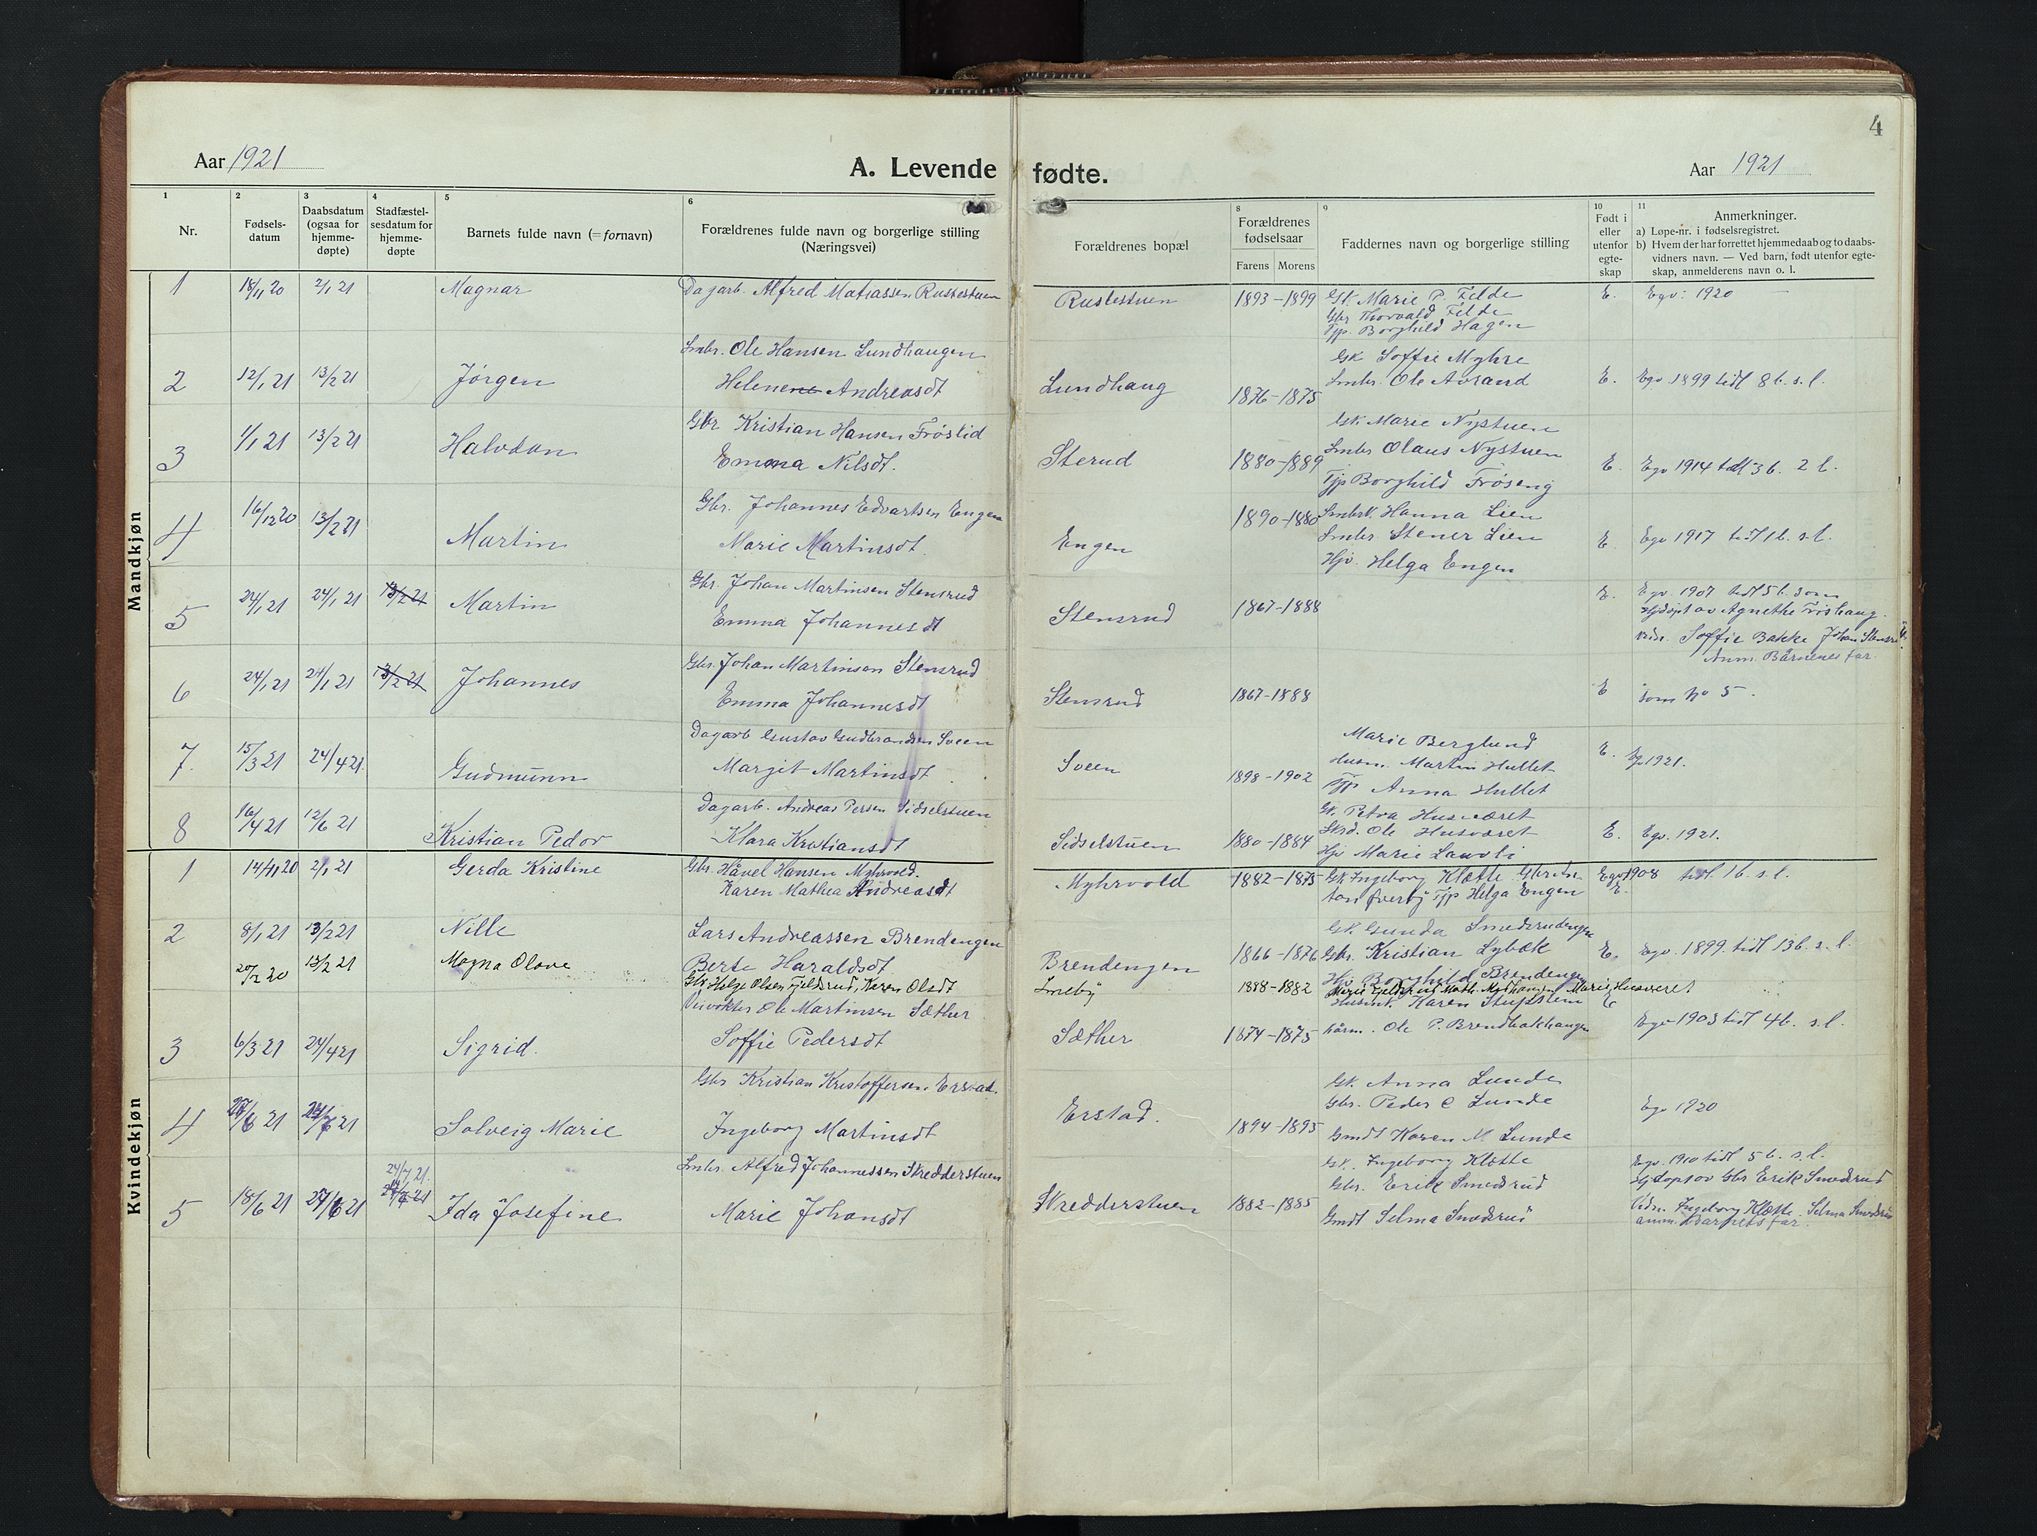 4
Aar 1921
A. Levende fødte.
Aar 1921
1 2 3 4 5 6 8 9 10 11
Nr.
Fødsels-
datum
Daabsdatum
(ogsaa for
hjemme-
døpte)
Stadfæstel-
sesdatum for
hjemme-
døpte
Barnets fulde navn (= fornavn)
Forældrenes fulde navn og borgerlige stilling
(Næringsvei)
Forældrenes bopæl
Forældrenes
fødselsaar
Farens Morens
Faddernes navn og borgerlige stilling
Født i
eller
utenfor
egte-
skap
Anmerkninger.
a) Løpe-nr. i fødselsregistret.
b) Hvem der har forrettet hjemmedaab og to daabs-
vidners navn. — Ved barn, født utenfor egte-
skap, anmelderens navn o. l.
Mandkjøn
1 18/11 20 2/1 21 Magnar Dagarb. Alfred Matiassen Rustestuen Rustestuen 1893-1899 Gk Marie P. Filde E. Egv: 1920
Gbr Thorvald Filde
Tjp Borghild Hagen
Smbr. Ole Hansen Lundhaugen Gk Soffie Myhre
2 12/1 21 13/2 21 Jørgen Helene Andreasdt Lundhaug 1876-1875 Smbr. Ole Avrand E. Egv 1899 tidl 8 b. s. l.
Gbr Kristian Hansen Frøslid Gk Marie Nystuen
3 1/1 21 13/2 21 Halvdan Emma Nilsdt. Sterud 1880-1889 Smbr Olaus Nystuen E. Egv 1914 tidl 3 b. 2 l.
Tjp Borghild Frøseng
Gbr. Johannes Edvartsen Engen Smbrk Hanna Lien
4 16/12 20 13/2 21 Martin Marie Martinsdt. Engen 1890-1880 Smbr Stener Lien E. Egv 1917 tidl 1 b. s. l.
Hjv. Helga Engen
Gbr. Johan Martinsen Stensrud E. Egv. 1907 tidl 5 b. som
5 24/1 21 24/1 21 13/2 21 Martin Emma Johannesdt Stensrud 1867-1888 Hjdøpt av Agnethe Frøshaug
vidn. Soffie Bakke Johan Stensrud
Anm. Barnenes far.
Gbr. Johan Martinsen Stensrud
6 24/1 21 24/1 21 13/2 21 Johannes Emma Johannesdt Stensrud 1867-1888 E som No 5.
Dagarb Gustav Gudbrandsen Sveen Marie Berglund
7. 15/3 21 24/4 21. Gudmunn Margit Martinsdt. Sveen 1898-1902 Husm. Martin Hullet E. 1921.
Tjp Anna Hullet
Dagarb. Andreas Persen Sidselstuen Gk. Petra Husværet
8 16/4 21 12/6 21 Kristian Pedor Klara Kristiansdt Sidselstuen 1880-1884 Ole Husværet E. Egv. 1921.
Hjv Marie Lauvli
Kvindekjøn
1 14/11 20 2/1 21 Gerda Kristine Gbr. Håvel Hansen Myhrvold. Myhrvold 1882-1875 Gk Ingeborg Klætte Egv 1908 tidl. 1 b. s. l.
Karen Mathea Andreasdt Tjp Helga Engen E.
Gk. Gunda Smedsrudengen
2 8/1 21 13/2 21 Nille Lars Andreassen Brendengen Brendengen 1866-1876 Gbr. Kristian Lybæk E. Egv. 1899 tidl 13 b. s. l.
Berte Haraldsdt Hjv Borghild Brendengen
20/2 20 13/2 21 Magna Olave Gbr Helge Olsen Fjeldsrud, Karen Olsdt Smeby 1888-1882 Marie Husværet
Ole Martinsen Sæther Karen E
3 6/3 21 24/4 21 Sigrid. Soffie Pedersdt Sæther 1874-1875 Ole P. Brendbakhaugen Egv 1903 tidl 4 b. s. l.
Gbr Kristian Kristoffersen Erstad. Gk. Anna Lunde
4 21 21 Solveig Marie Ingeborg Martinsdt Erstad. 1894-1895 Gbr. Peder C Lunde Egv 1920
Gmdt Karen M. Lunde
Smbr. Alfred Johannessen Skredderstuen Gk. Ingeborg Klætte Egv. 1910 tidl 5 b. s. l.
24/7 21. Gbr. Erik Smedsrud Hjdøpt av Gbr Erik Smedsrud
5 18/6 21 27/6 21 Ida Josefine Marie Johansdt Skredderstuen 1882-1885 Gmdt Selma Smedsrud Vidn. Ingeborg Klætte. Selma Smedsrud
anm. Barnets far.